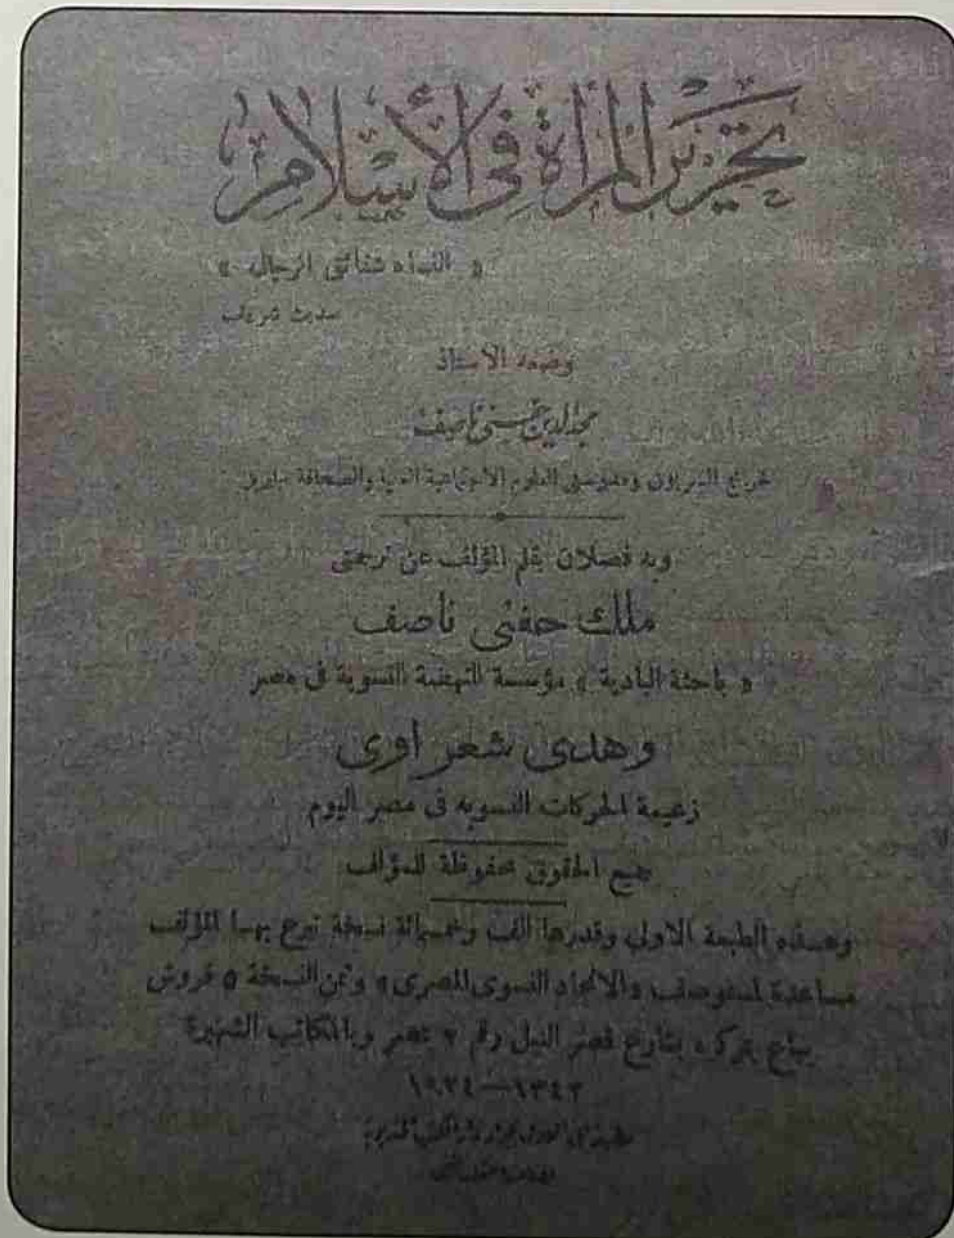 تحرير المرأة في الأسلام
« النساء شقائق الرجال »
حديث شريف
وضعه الاستاذ
مجد الدين حفني ناصف
خريج السربون ومدرستى العلوم الاجتماعية العليا والصحافة بباريز
وبه فصلان بقلم المؤلف عن ترجمتى
ملك حفنى ناصف
« باحثة البادية » مؤسسة النهضة النسوية فى مصر
وهدى شعراوى
زعيمة الحركات النسويه فى مصر اليوم
جميع الحقوق محفوظة للمؤلف
وهذه الطبعة الاولى وقدرها الف وخمسمائة نسخة تبرع بها المؤلف
مساعدة لمستوصف والاتحاد النسوى المصرى» وثمن النسخة ٥ قروش
يباع بمركزه بشارع قصر النيل رقم ٢ بمصر وبالمكاتب الشهيرة
١٣٤٢—١٩٢٤